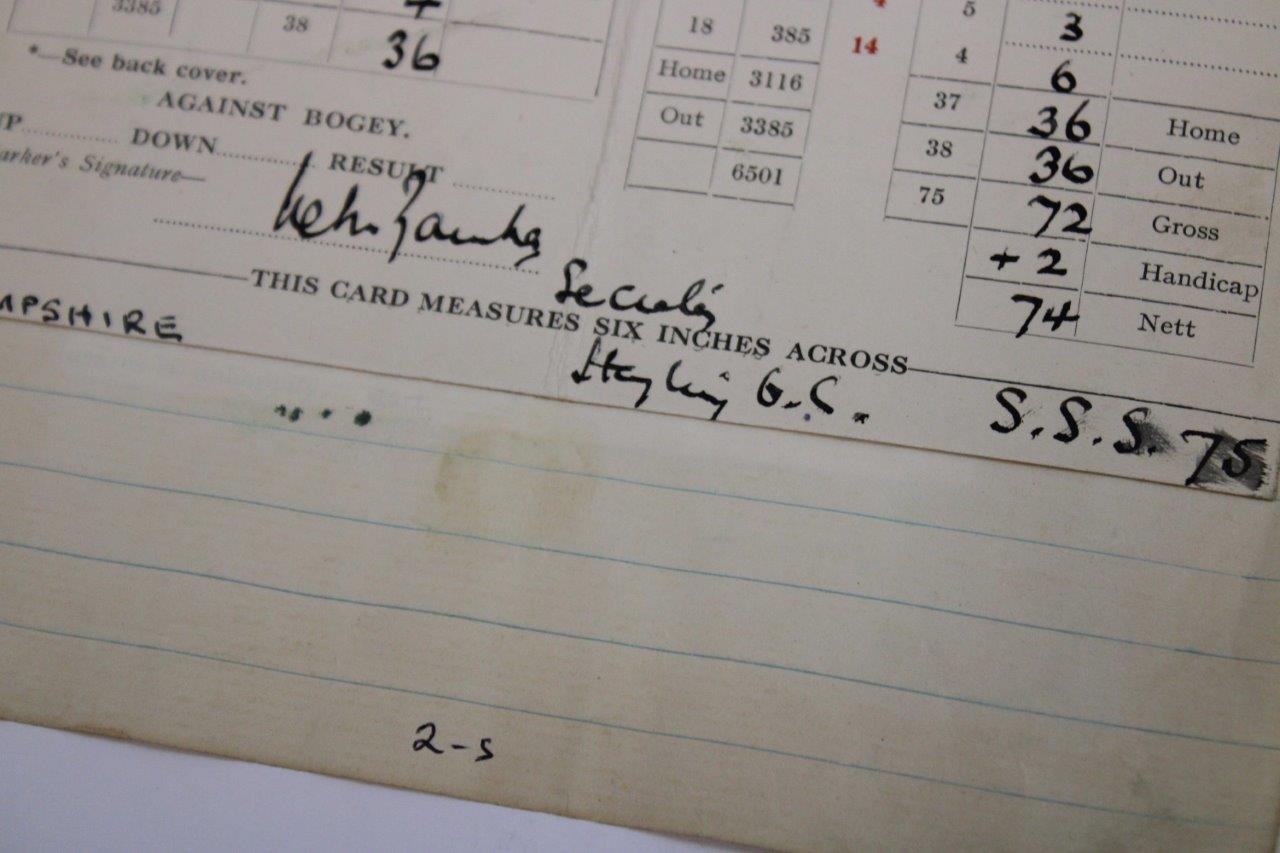 3385 38 4
36
*—See back cover.
AGAINST BOGEY.
UP.......... DOWN.......... RESULT ..........
arker's Signature—
18 385 14
Home 3116
Out 3385
6501
5 3
4 6
37 36 Home
38 36 Out
75 72 Gross
+2 Handicap
74 Nett
THIS CARD MEASURES SIX INCHES ACROSS
MPSHIRE
Hayling G.C.
S.S.S. 75
2-5